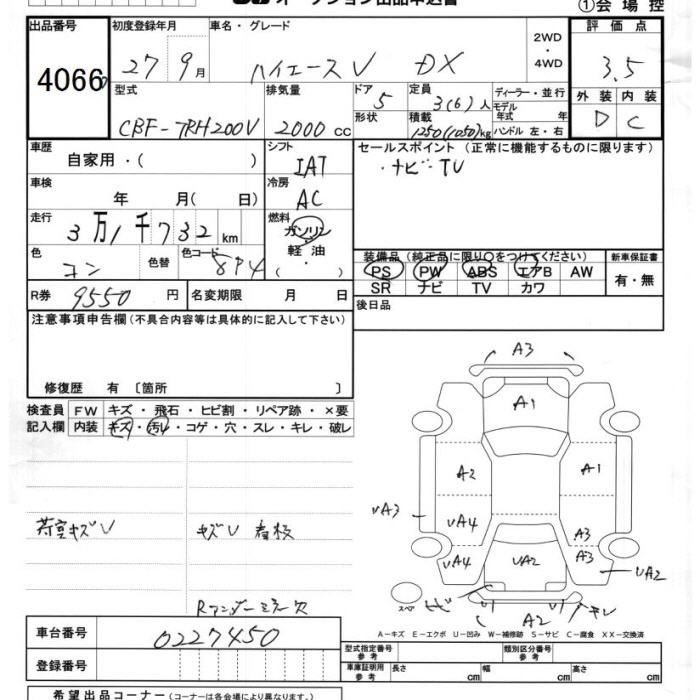 オークション出品申込書
①会場控
出品番号 初度登録年月 車名・グレード 評価点
4066 27 9月 ハイエースV DX 2WD・4WD 3.5
型式 排気量 ドア 定員 ディーラー・並行 外装 内装
CBF-TRH200V 2000 cc 5 3(6)人 モデル年式 年 D C
形状 積載 1250(1050)kg ハンドル 左・右
車歴 自家用・( ) シフト IAT セールスポイント (正常に機能するものに限ります)
・ナビ・TV
車検 年 月( 日) 冷房 AC
走行 3万1千732km 燃料 ガソリン・軽油 ( )
色 コン 色替 色コード 8P4
装備品(純正品に限り○をつけてください) 新車保証書
PS PW ABS エアB AW 有・無
SR ナビ TV カワ
R券 9550円 名変期限 月 日 後日品
注意事項申告欄(不具合内容等は具体的に記入して下さい)
修復歴 有 〔箇所 〕
検査員 FW キズ・飛石・ヒビ割・リペア跡・×要
記入欄 内装 キズ・汚レ・コゲ・穴・スレ・キレ・破レ
A3
A1
A2 A1
UA3
UA4 A3
UA4 UA2 A3
UA2
スペア
A2 キレ
荷室キズU キズU 看板
Rアンダーミラー欠
A-キズ E-エクボ U-凹み W-補修跡 S-サビ C-腐食 XX-交換済
車台番号 0227450
登録番号
型式指定番号 参考 類別区分番号 参考
車庫証明用 参考 長さ cm 幅 cm 高さ cm
希望出品コーナー(コーナーは各会場により異なります。)